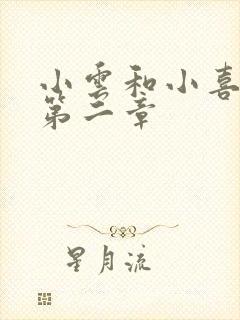 小雲和小喜
第二章
星月流